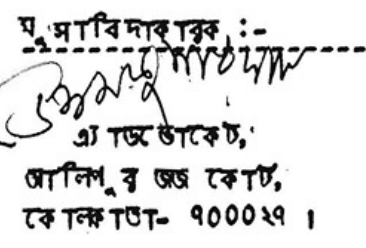 মুসাবিদাকারক :-
এ্যাডভোকেট,
আলিপুর জজ কোর্ট,
কোলকাতা- ৭০০০২৭ ।